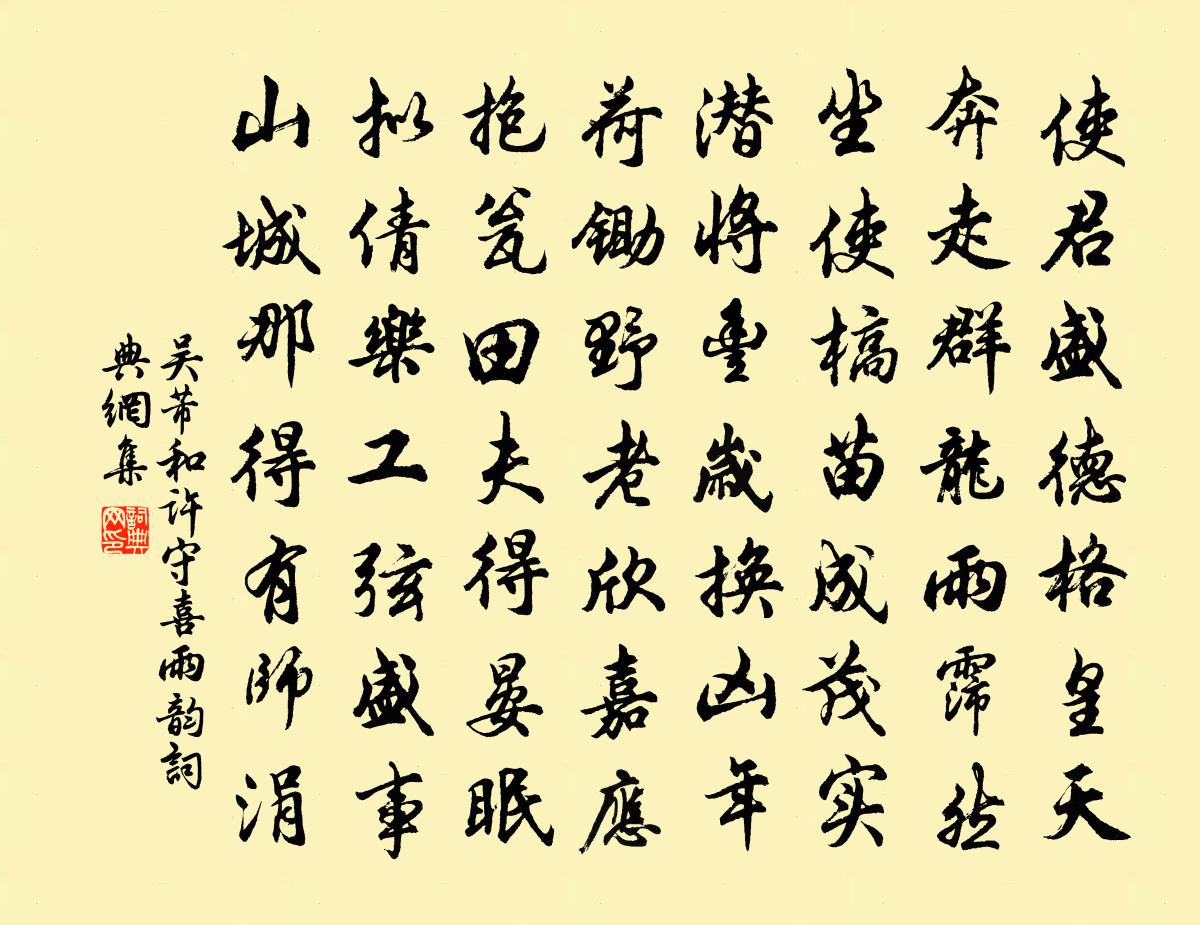 使君盛德格皇天
奔走群龍雨霈然
坐使槁苗成茂实
潜将豊歳換凶年
荷鋤野老欣嘉應
抱瓮田夫得晏眠
拟倩樂工弦盛事
山城那得有師涓
吴芾和许守喜雨韵詞
典網集
詞典网印